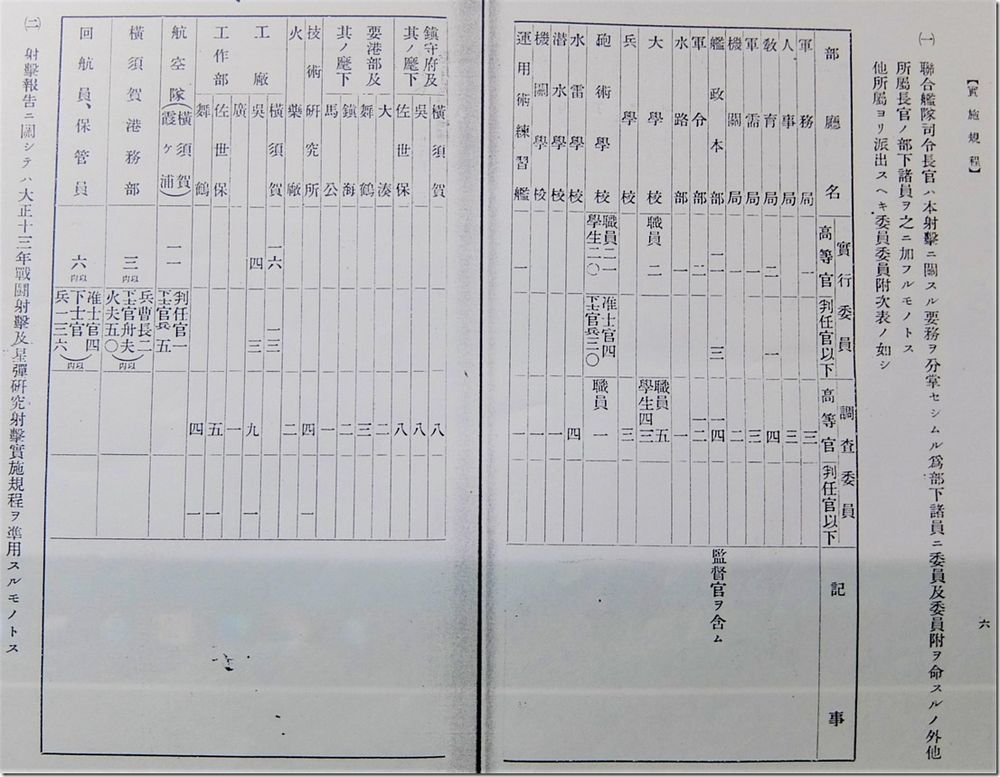 六
【實施規程】
㈠ 聯合艦隊司令長官ハ本射擊ニ關スル要務ヲ分掌セシムル爲部下諸員ニ委員及委員附ヲ命スルノ外他
所屬長官ノ部下諸員ヲ之ニ加フルモノトス
他所屬ヨリ派出スヘキ委員委員附次表ノ如シ
部廳名 實行委員 高等官 判任官以下 調査委員 高等官 判任官以下 記事
軍務局 一 三
人事局 三
敎育局 二 一 四
軍需局 一 三
機關局 二
艦政本部 二一 三 一四 監督官ヲ含ム
軍令部 二 一二
水路部 一 一
大學校 職員 二 職員五 學生四三
兵學校 三
砲術學校 職員二一 學生二〇 准士官四 下士官兵三〇 職員 一
水雷學校 四
潜水學校 一
機關學校 一
運用術練習艦 一 一
鎭守府及其ノ麾下 橫須賀 八
吳 八
佐世保 八
要港部及其ノ麾下 大湊 二
舞鶴 三
鎭海 二
馬公 一
技術硏究所 四 一
火藥廠 二
工廠 橫須賀 一六 一三
吳 四 三 九 一
廣 一
工作部 佐世保 五 一
舞鶴 四 一
航空隊(橫須賀 霞ヶ浦) 二一 判任官一 下士官兵五
橫須賀港務部 三以內 兵曹長二 下士官舟夫 火夫五〇(以內)
回航員、保管員 六以內 准士官四 下士官 兵一三六(以內)
㈡ 射擊報告ニ關シテハ大正十三年戰鬪射擊及星彈硏究射擊實施規程ヲ準用スルモノトス